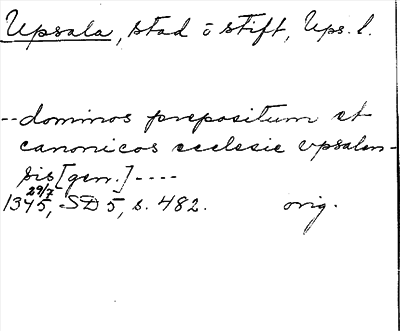 Upsala, stad o stift, Ups. l.
--dominos prepositum et
canonicos ecclesie vpsalen-
sis [gen.] ----
29/7
1345, SD 5, s. 482. orig.